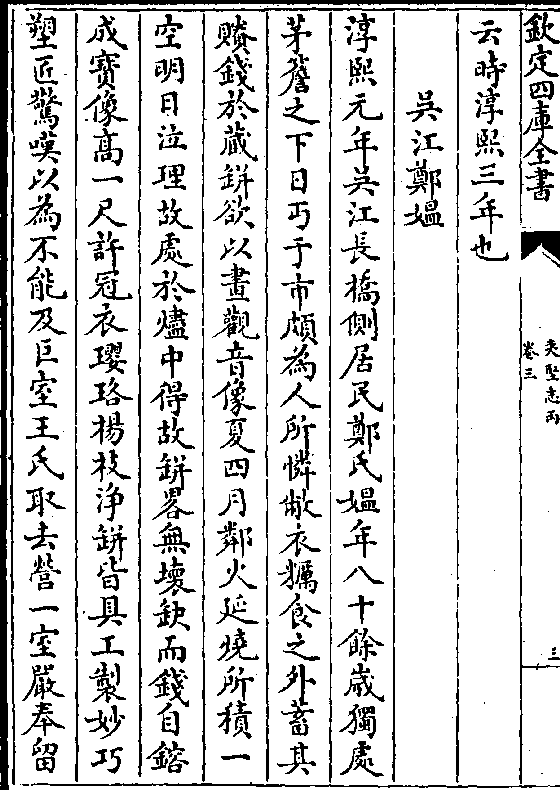 欽定四庫全書
夷堅志丙
卷三
三
云時淳熙三年也
吳江鄭媪
淳熙元年吳江長橋側居民鄭氏媪年八十餘歲獨處
茅簷之下日丐于市頗為人所憐敝衣糲食之外蓄其
賸錢於藏缾欲以畫觀音像夏四月鄰火延燒所積一
空明日泣理故處於燼中得故缾畧無壞缺而錢自鎔
成寶像高一尺許冠衣瓔珞楊枝淨缾皆具工製妙巧
塑匠驚嘆以為不能及巨室王氏取去營一室嚴奉留